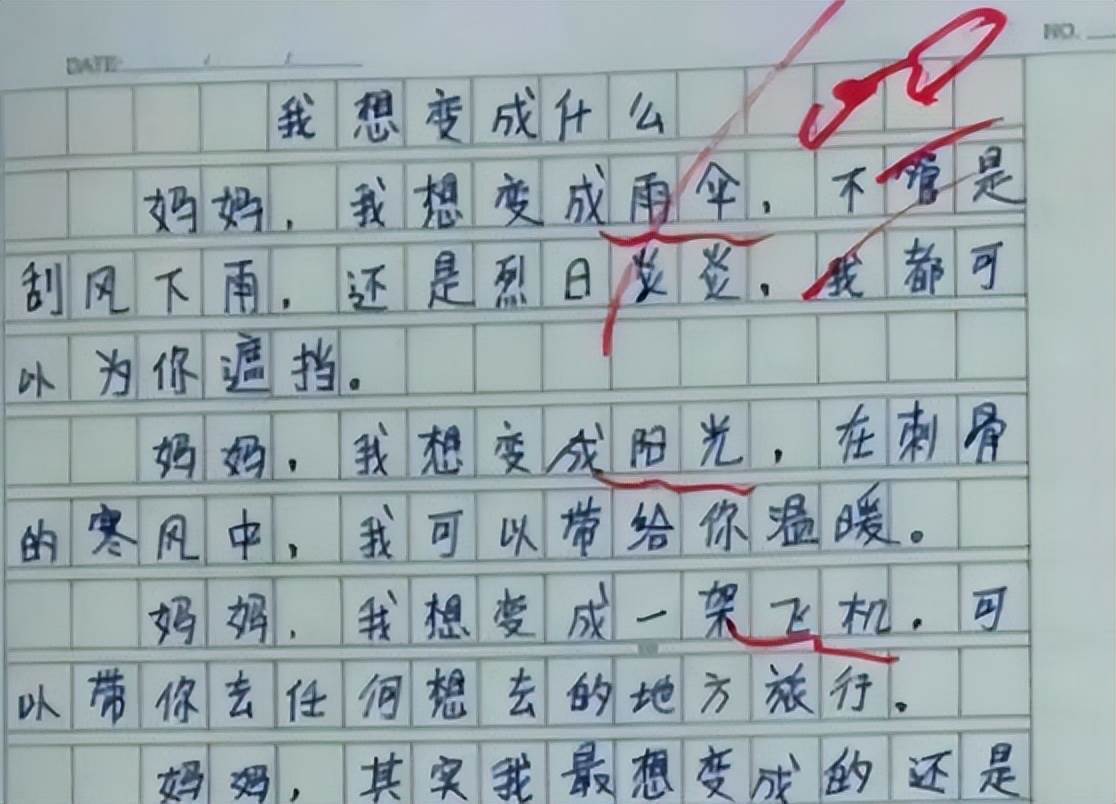 DATE: / /
NO.
我想变成什么
妈妈，我想变成雨伞，不管是
刮风下雨，还是烈日炎炎，我都可
以为你遮挡。
妈妈，我想变成阳光，在刺骨
的寒风中，我可以带给你温暖。
妈妈，我想变成一架飞机，可
以带你去任何想去的地方旅行。
妈妈，其实我最想变成的还是